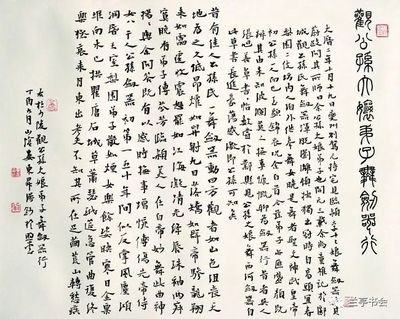 觀公孫大孃弟子舞劍器行
大曆二年十月十九日夔州別駕元持宅見臨潁李十二娘舞劍器壯其
蔚跂問其所師曰余公孫大娘弟子也開元三載余尚童稚記於郾
城觀公孫氏舞劍器渾脫瀏灕頓挫獨出冠時自高頭宜春
梨園二伎坊內人洎外供奉舞女曉是舞者聖文神武皇帝
初公孫一人而已玉貌錦衣況余白首今茲弟子亦匪盛顏既
辨其由來知波瀾莫二撫事慷慨聊為劍器行昔者吳人
張旭善草書書帖數嘗於鄴縣見公孫大娘舞西河劍器自
此草書長進豪蕩感激即公孫可知矣
昔有佳人公孫氏一舞劍器動四方觀者如山色沮喪天
地為之久低昂㸌如羿射九日落矯如群帝驂龍翔
來如雷霆收震怒罷如江海凝清光絳唇珠袖兩寂
寞晚有弟子傳芬芳臨潁美人在白帝妙舞此曲神
揚揚與余問答既有以感時撫事增惋傷先帝侍
女八千人公孫劍器初第一五十年間似反掌風塵澒
洞昏王室梨園弟子散如煙女樂餘姿映寒日金粟
堆南木已拱瞿唐石城草蕭瑟玳筵急管曲復終
樂極哀來月東出老夫不知其所往足繭荒山轉愁疾
右杜少陵觀公孫大娘弟子舞劍器行
丁酉六月山陰
兰亭书会